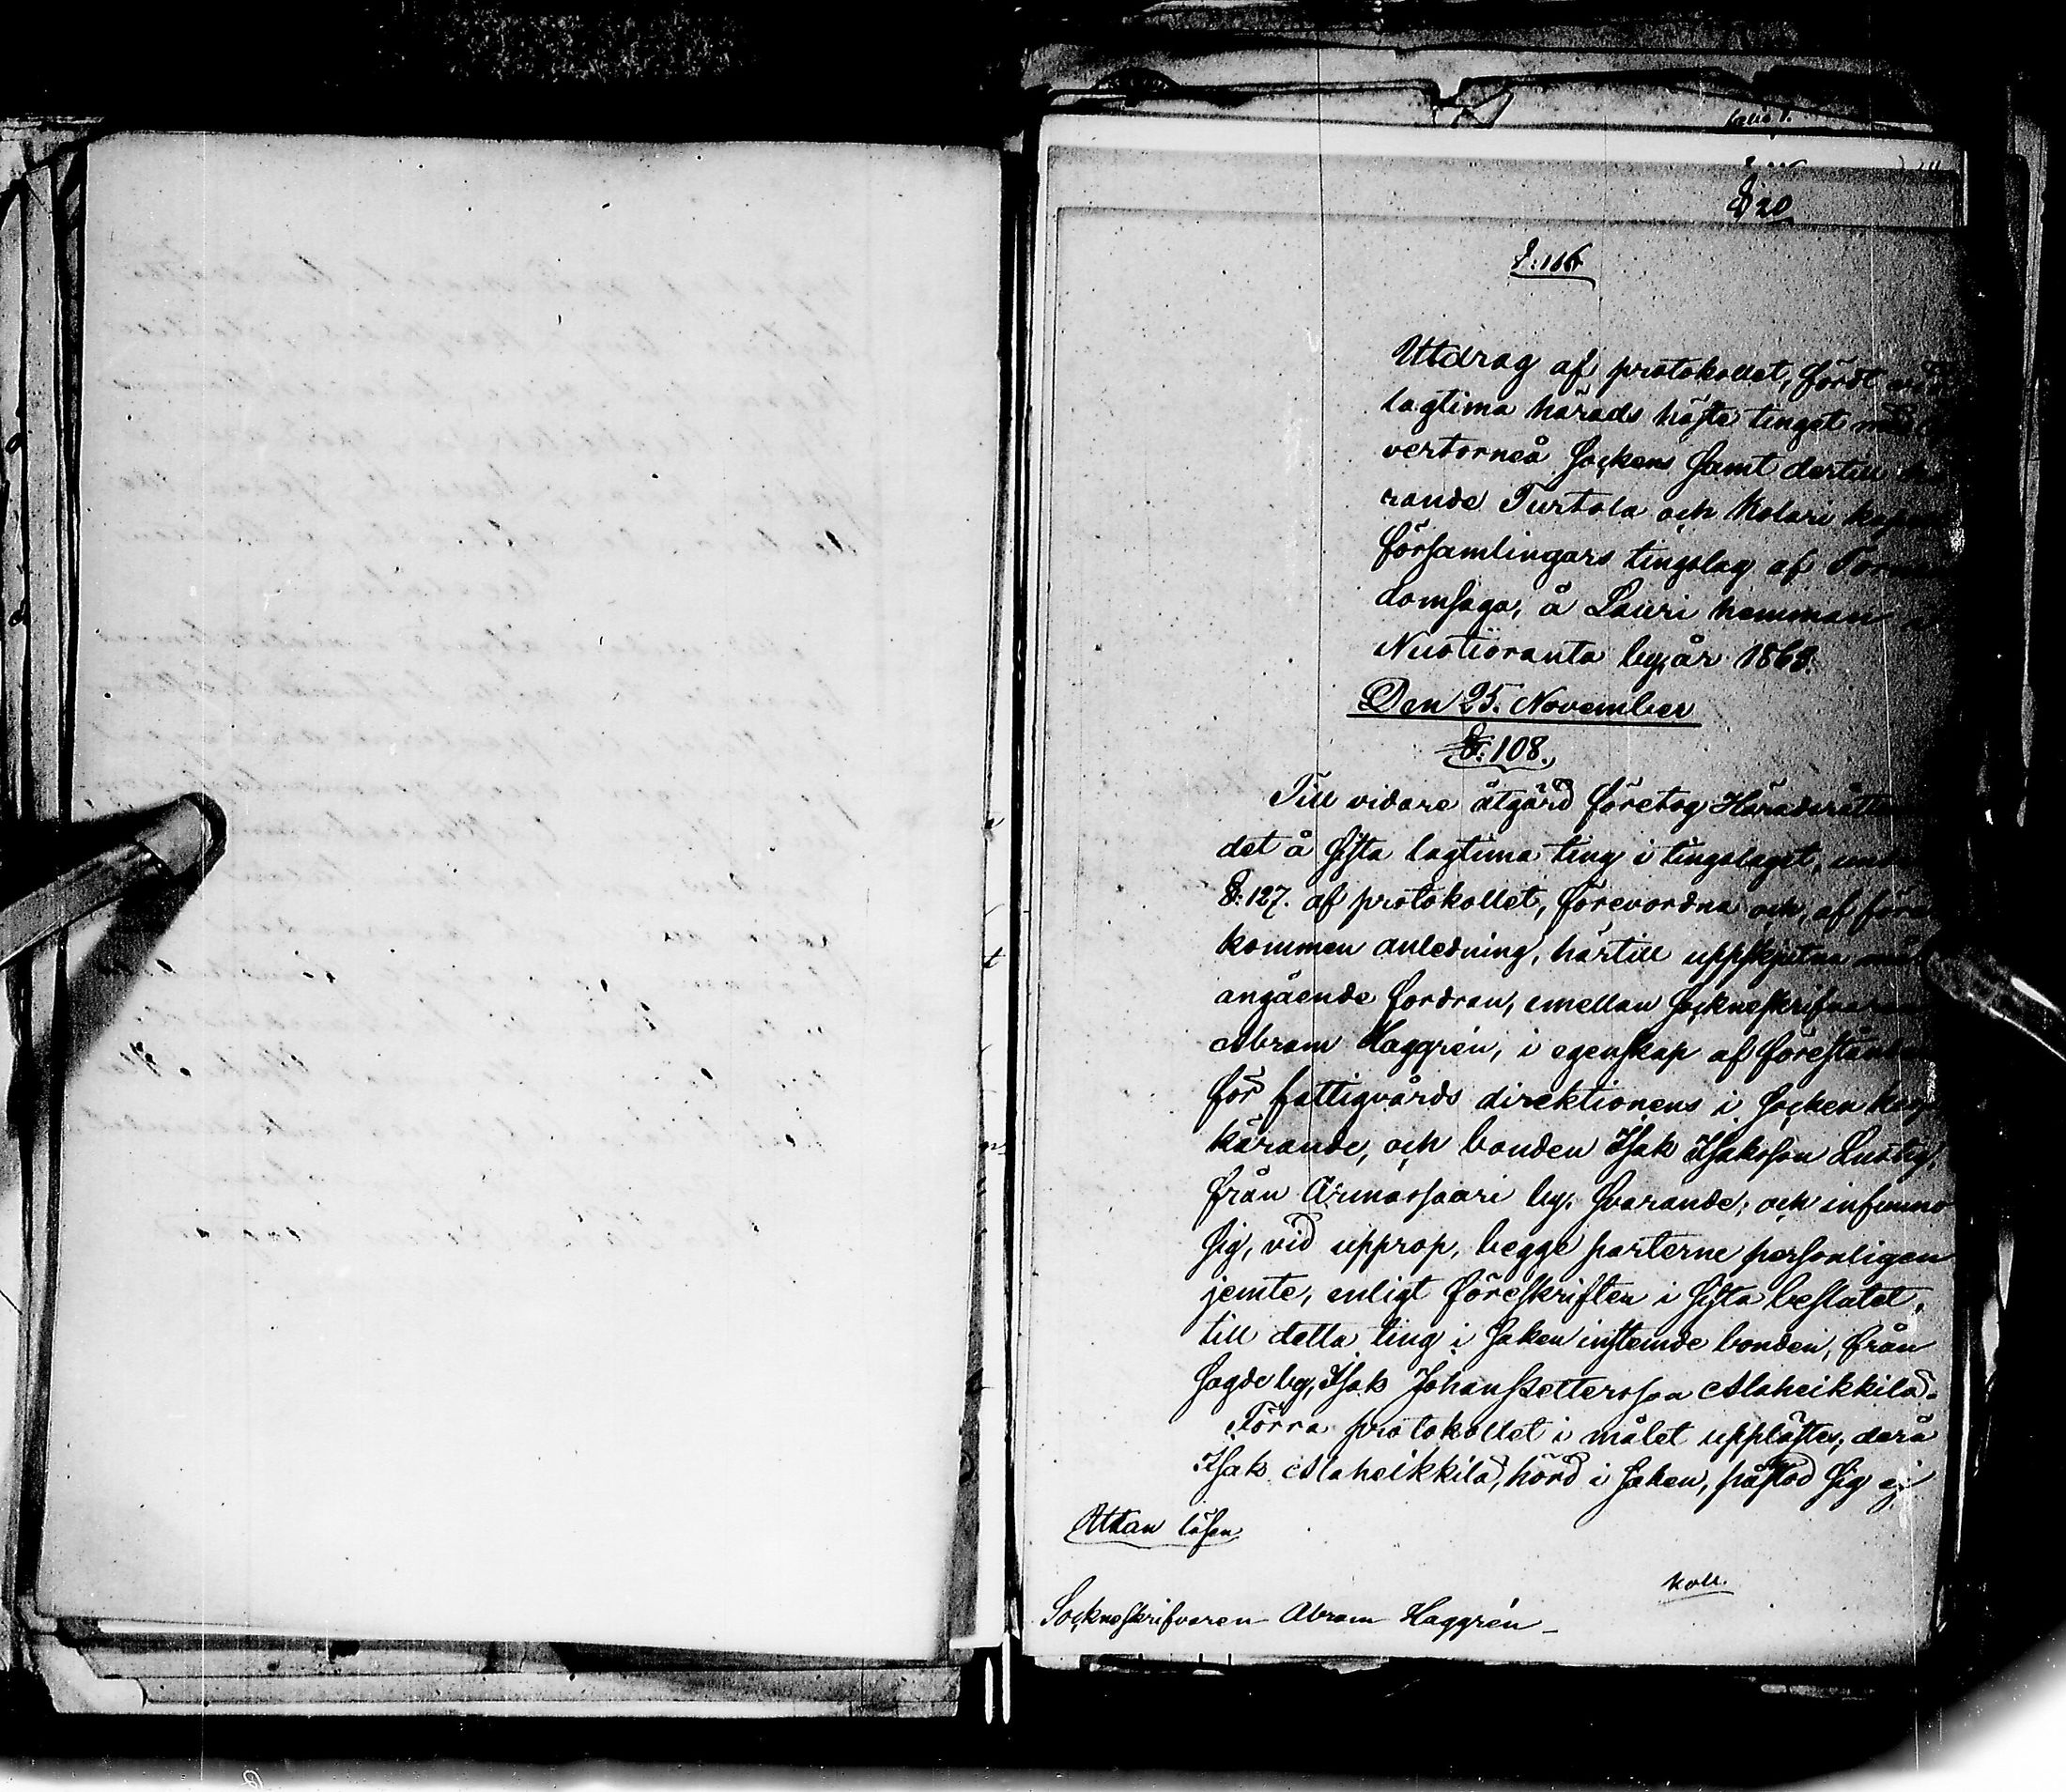 § 20
§: 116
Utdrag af protokollet, fördt vid
lagtima härads höste tinget med
vertorneå Sockens Samt dertill
rande Turtola och Kolari
församlingars tingslag af
domsaga, å Lauri hemman
Nuotioranta by, år 1868.
Den 25. November
§: 108.
Till vidare åtgärd företog Häradsrätten
det å sista lagtima ting i tingslaget, under
§: 127. af protokollet, förevordna och, af före
kommen anledning, härtill uppskjutna
angående fordran, emellan Sockneskrifvaren
Abram Haggrén, i egenskap af föreståndare
för fattigvårds direktionens i Socken
kärande, och bonden Isak Isaksson Lustig,
från Armassaari by, Svarande; och infunno
sig, vid upprop, begge parterne personligen
jemte, enligt föreskriften i sista beslutet,
till detta ting i Saken instemde bonden, från
Sagde by, Isak Johan Pettersson Alaheikkilä.
Förra protokollet i målet upplästes; derå
Isak Alaheikkilä, hörd i Saken, påstod Sig ej
Uttan lösen
koll.
Sockneskrifvaren Abram Haggrén